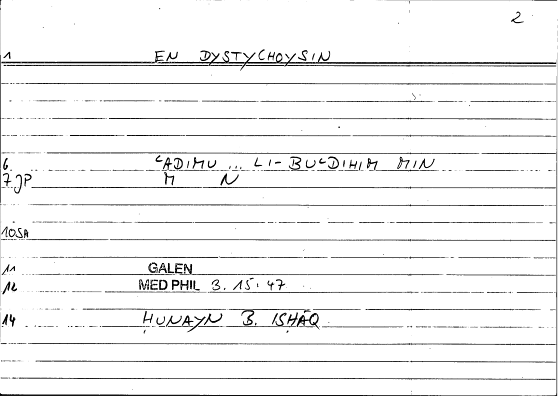 2
1 EN DYSTYCHOYSIN
6 ʿADIMU ... LI-BUʿDIHIM MIN
7 JP M N
10 SA
11 GALEN
12 MED PHIL 3.15:47
14 ḤUNAYN B. ISḤĀQ